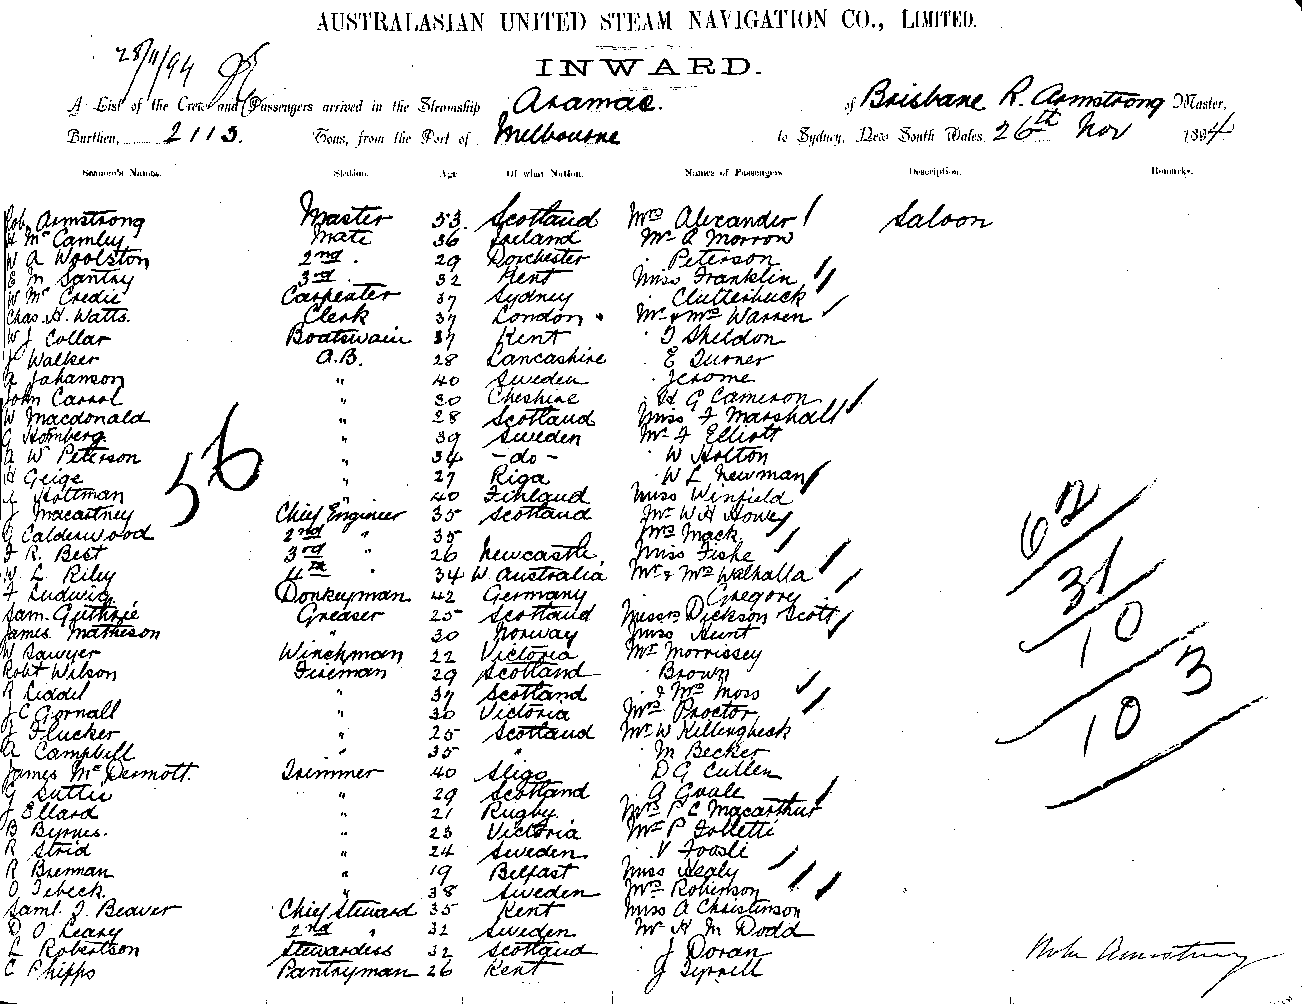 AUSTRALASIAN UNITED STEAM NAVIGATION CO., LIMITED.
28/11/94
INWARD.
A List of the Crew and Passengers arrived in the Steamship Aramac. of Brisbane R. Armstrong Master,
Burthen, 2113. Tons, from the Port of Melbourne to Sydney, New South Wales 26th Nov 1894
Seamen's Names. Station. Age Of what Nation. Names of Passengers Description. Remarks.
Rob. Armstrong Master 53. Scotland Mrs Alexander Saloon
H McCamley Mate 36 Ireland Mr A Morrow
W A Woolston 2nd . 29 Dorchester Peterson
E M Santry 3rd . 32 Kent Miss Franklin
W McCredie Carpenter 37 Sydney Clutterbuck
Chas. H. Watts. Clerk 37 London Mr & Mrs Warren
W J Collar Boatswain 37 Kent T Sheldon
J Walker A.B. 28 Lancashire E Turner
A Johanson " 40 Sweden Jerome
John Carrol " 30 Cheshire H G Cameron
W Macdonald " 28 Scotland Miss F Marshall
G Holmberg " 39 Sweden Mr F Elliott
A W Peterson " 34 - do - W Holton
H Geige " 27 Riga W L Newman
J Holtman " 40 Finland Miss Winfield
J Macartney Chief Engineer 35 Scotland Mr W H Howey
G Calderwood 2nd " 35 Mrs Mack
F R. Best 3rd " 26 Newcastle Miss Fishe
W. L Riley 4th " 34 W. Australia Mr & Mrs Walhalla
F Ludwig Donkeyman 42 Germany Gregory
Sam. Guthrie Greaser 25 Scotland Messrs Dickson Scott
James Matheson " 30 Norway Miss Hunt
W Sawyer Winchman 22 Victoria Mr Morrissey
Robt Wilson Fireman 29 Scotland Brown
R Liddel " 37 Scotland & Mrs Moss
J C Gornall " 30 Victoria Mrs Proctor
J Flucker " 25 Scotland Mr W Killingbeck
A Campbell " 35 " M Becker
James McDermott. Trimmer 40 Sligo D G Cullen
G Suttie " 29 Scotland A Goole
J Ellard " 21 Rugby Mrs P C Macarthur
B Byrnes. " 23 Victoria Mr P Tolletti
R Strid " 24 Sweden V Foosli
R Brennan " 19 Belfast Miss Healy
O Tebeck " 38 Sweden Mrs Robinson
Saml. J. Beaver Chief Steward 35 Kent Miss A Christinson
D O'Leary 2nd " 32 Sweden Mr H M Dodd
L Robertson Stewardess 32 Scotland J Doran
C Phipps Pantryman 26 Kent J Tyrrell
56
62
31
10
103
Robt Armstrong